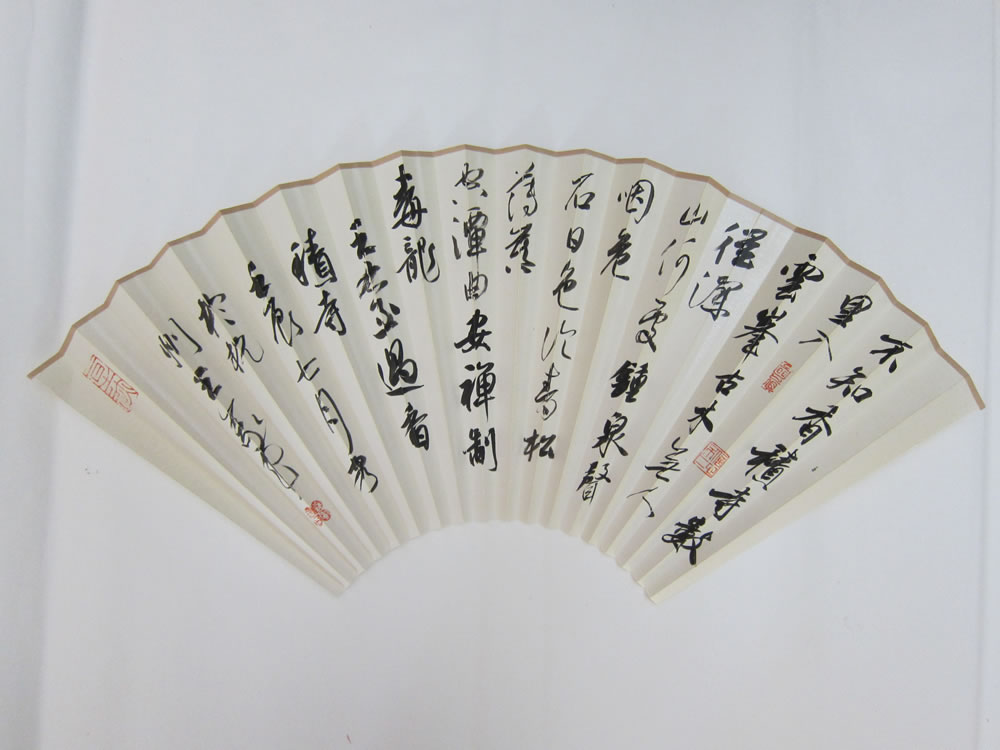 不知香積寺數
里入
雲峯古木無人
徑深
山何處鐘泉聲
咽危
石日色冷青松
薄暮
空潭曲安禪制
毒龍
王過香
積寺
七月
於杭
州